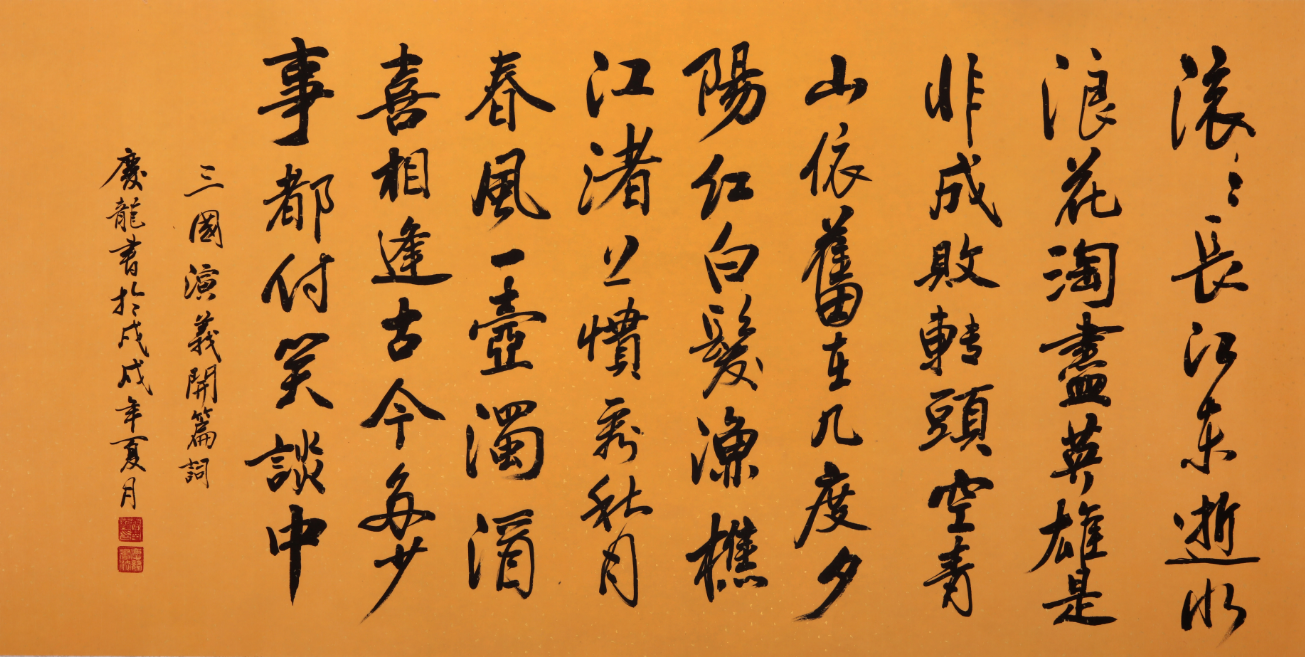 滚々長江东逝水
浪花淘盡英雄是
非成敗轉頭空青
山依舊在几度夕
陽红白髮漁樵
江渚上慣看秋月
春風一壺濁酒
喜相逢古今多少
事都付笑談中
三國演義開篇詞
慶龍書於戊戌年夏月